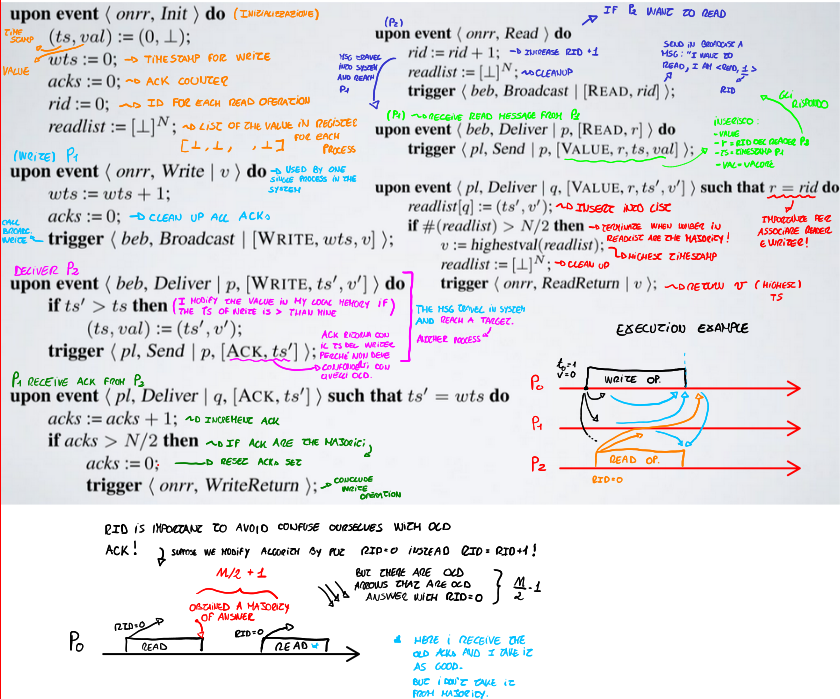 upon event ⟨ onrr, Init ⟩ do (INIZIALIZZAZIONE)
TIME STAMP
(ts,val) := (0, ⊥);
VALUE
wts := 0; → TIMESTAMP FOR WRITE
acks := 0; → ACK COUNTER
rid := 0; → ID FOR EACH READ OPERATION
readlist := [⊥]^N; → LIST OF THE VALUE IN REGISTER
FOR EACH
PROCESS
[⊥,⊥, ,⊥]
(WRITE) P1
upon event ⟨ onrr, Write | v ⟩ do → USED BY ONE
SINGLE PROCESS IN THE
SYSTEM
wts := wts + 1;
acks := 0; → CLEAN UP ALL ACKs
CALL
BROADC.
WRITE
trigger ⟨ beb, Broadcast | [WRITE, wts, v] ⟩;
DELIVER P2
upon event ⟨ beb, Deliver | p, [WRITE, ts′, v′] ⟩ do
if ts′ > ts then (I MODIFY THE VALUE IN MY LOCAL MEMORY IF)
THE TS OF WRITE IS > THAN MINE
(ts, val) := (ts′, v′);
trigger ⟨ pl, Send | p, [ACK, ts′] ⟩;
ACK RITORNA CON
IL TS DEL WRITER
PERCHÉ NON DEVE
CONFONDERSI CON
QUELLI OLD.
THE MSG TRAVEL IN SYSTEM
AND REACH A TARGET.
ANOTHER PROCESS
P1 RECEIVE ACK FROM P2
upon event ⟨ pl, Deliver | q, [ACK, ts′] ⟩ such that ts′ = wts do
acks := acks + 1; → INCREMENT ACK
if acks > N/2 then → IF ACK ARE THE MAJORITY
acks := 0; → RESET ACKs SET
trigger ⟨ onrr, WriteReturn ⟩; → CONCLUDE
WRITE
OPERATION
(P2)
IF P2 WANT TO READ
upon event ⟨ onrr, Read ⟩ do
rid := rid + 1; → INCREASE RID +1
readlist := [⊥]^N; → CLEANUP
trigger ⟨ beb, Broadcast | [READ, rid] ⟩;
MSG TRAVEL
INTO SYSTEM
AND REACH
P1
SEND IN BROADCAST A
MSG: "I WANT TO
READ, I AM <READ, 1>
RID
GLI
RISPONDO
(P1) → RECEIVE READ MESSAGE FROM P2
upon event ⟨ beb, Deliver | p, [READ, r] ⟩ do
trigger ⟨ pl, Send | p, [VALUE, r, ts, val] ⟩;
INSERISCO:
- VALUE
- r = RID DEL READER P2
- TS = TIMESTAMP P1
- VAL = VALORE
upon event ⟨ pl, Deliver | q, [VALUE, r, ts′, v′] ⟩ such that r = rid do
readlist[q] := (ts′, v′); → INSERT INTO LIST
if #(readlist) > N/2 then → TERMINATE WHEN NUMBER IN
READLIST ARE THE MAJORITY!
v := highestval(readlist); → HIGHEST TIMESTAMP
readlist := [⊥]^N; → CLEAN UP
trigger ⟨ onrr, ReadReturn | v ⟩; → RETURN V (HIGHEST)
TS
IMPORTANTE PER
ASSOCIARE READER
E WRITER!
EXECUTION EXAMPLE
t0=1
v=0
P0 WRITE OP.
P1
P2 READ OP.
RID=0
RID IS IMPORTANT TO AVOID CONFUSE OURSELVES WITH OLD
ACK! SUPPOSE WE MODIFY ALGORITH BY PUT RID=0 INSTEAD RID=RID+1!
N/2 + 1
OBTAINED A MAJORITY
OF ANSWER
BUT THERE ARE OLD
ARROWS THAT ARE OLD
ANSWER WITH RID=0
N/2 - 1
RID=0
RID=0
P0 READ READ *
* HERE I RECEIVE THE
OLD ACKs AND I TAKE IT
AS GOOD.
BUT I DON'T TAKE IT
FROM MAJORITY.